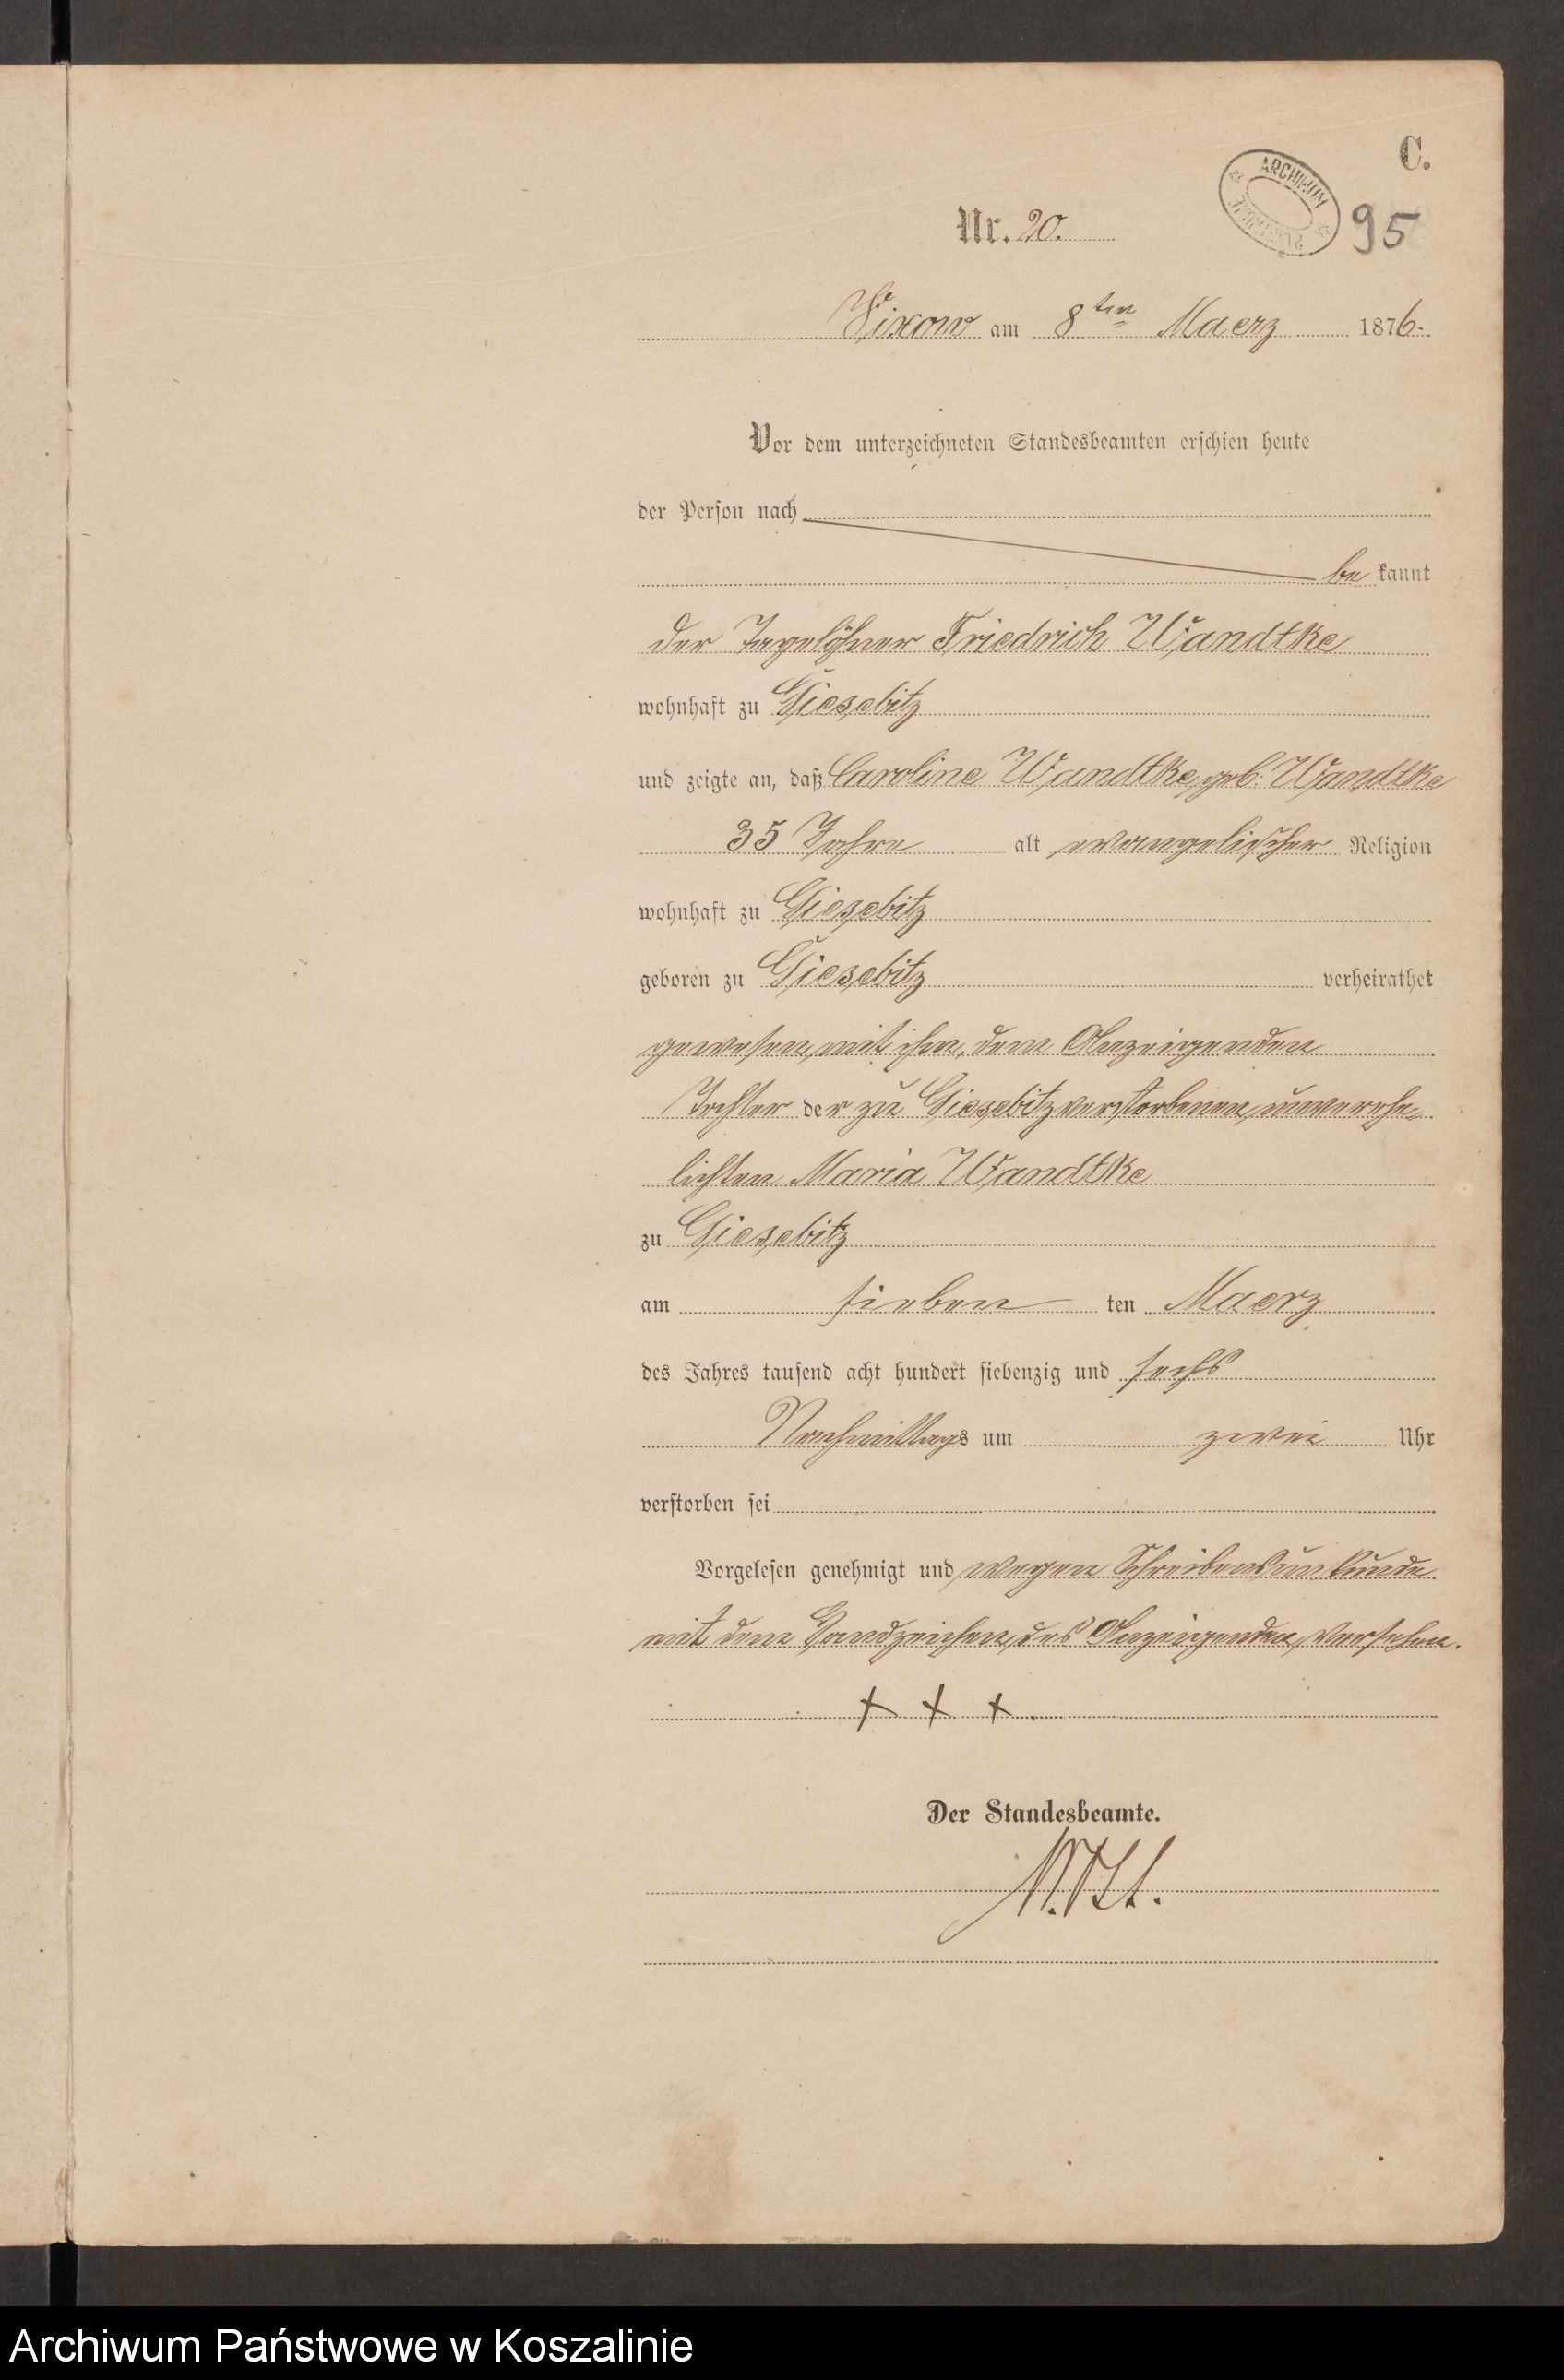 C.
ARCHIWUM
95
Nr. 20.
Vixow am 8ten Maerz 1876.
Vor dem unterzeichneten Standesbeamten erschien heute
der Person nach
be kannt
der Tagelöhner Friedrich Wandtke
wohnhaft zu Giesebitz
und zeigte an, daß Caroline Wandtke, geb: Wandtke
35 Jahre alt evangelischer Religion
wohnhaft zu Giesebitz
geboren zu Giesebitz verheirathet
gewesen, mit ihm, dem Anzeigenden
Tochter der zu Giesebitz verstorbenen, unverehe-
lichten Maria Wandtke
zu Giesebitz
am sieben ten Maerz
des Jahres tausend acht hundert siebenzig und sechs
Nachmittags um zwei Uhr
verstorben sei
Vorgelesen genehmigt und wegen Schreibensunkunde
mit dem Handzeichen, des Anzeigenden, versehen.
+ + +
Der Standesbeamte.
Archiwum Państwowe w Koszalinie